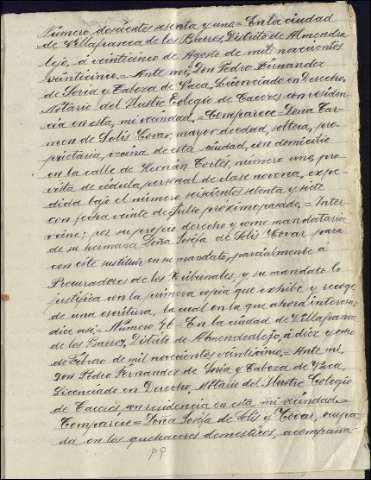 Número doscientos setenta y uno = En la ciudad
de Villafranca de los Barros, Distrito de Almendra-
lejo, á veinticinco de Agosto de mil novecientos
veinticinco. = Ante mí, Don Pedro Fernandez
de Soria y Cabeza de Vaca, Licenciado en Derecho,
Notario del Ilustre Colegio de Caceres con residen-
cia en esta, mi vecindad. = Comparece = Doña Car-
men de Solís Tovar, mayor de edad, soltera, pro-
pietaria, vecina de esta ciudad, con domicilio
en la calle de Hernán Cortés, número uno, pro-
vista de cédula personal de clase novena, expe-
dida bajo el número seiscientos setenta y siete
con fecha veinte de Julio próximo pasado. = Inter-
viene: por su propio derecho y como mandataria
de su hermana Doña Josefa de Solís Tovar para
con este sustituir su mandato, parcialmente á
Procuradores de los Tribunales, y su mandato lo
justifica con la primera copia que exhibe y recoge
de una escritura, la cual en lo que ahora interesa,
dice así: = Número 46 = En la ciudad de Villafranca
de los Barros, Distrito de Almendralejo, á diez y ocho
de Febrero de mil novecientos veinticinco. = Ante mí,
Don Pedro Fernandez de Soria y Cabeza de Vaca,
Licenciado en Derecho, Notario del Ilustre Colegio
de Caceres, con residencia en esta, mi vecindad. =
Comparece = Doña Josefa de Solís y Tovar, ocupa-
da en los quehaceres domésticos, acompaña-